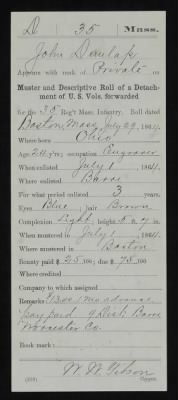 D 35 Mass.
John Dunlap
Appears with rank of Private on
Muster and Descriptive Roll of a Detach-
ment of U. S. Vols. forwarded
for the 35 Reg't Mass. Infantry. Roll dated
Boston, Mass July 29, 1864
Where born Ohio
Age 24 y'rs; occupation Engraver
When enlisted July 1, 1864
Where enlisted Barre
For what period enlisted 3 years.
Eyes Blue; hair Brown
Complexion Light; 5 ft. in.
When mustered in July 1, 1864
Where mustered in Boston
Bounty paid $ 25 100; due $ 75 100
Where credited
Company to which assigned
Remarks: 1 mo advance
pay paid Dist Barre
Worcester Co.
Book mark:
Copyist.